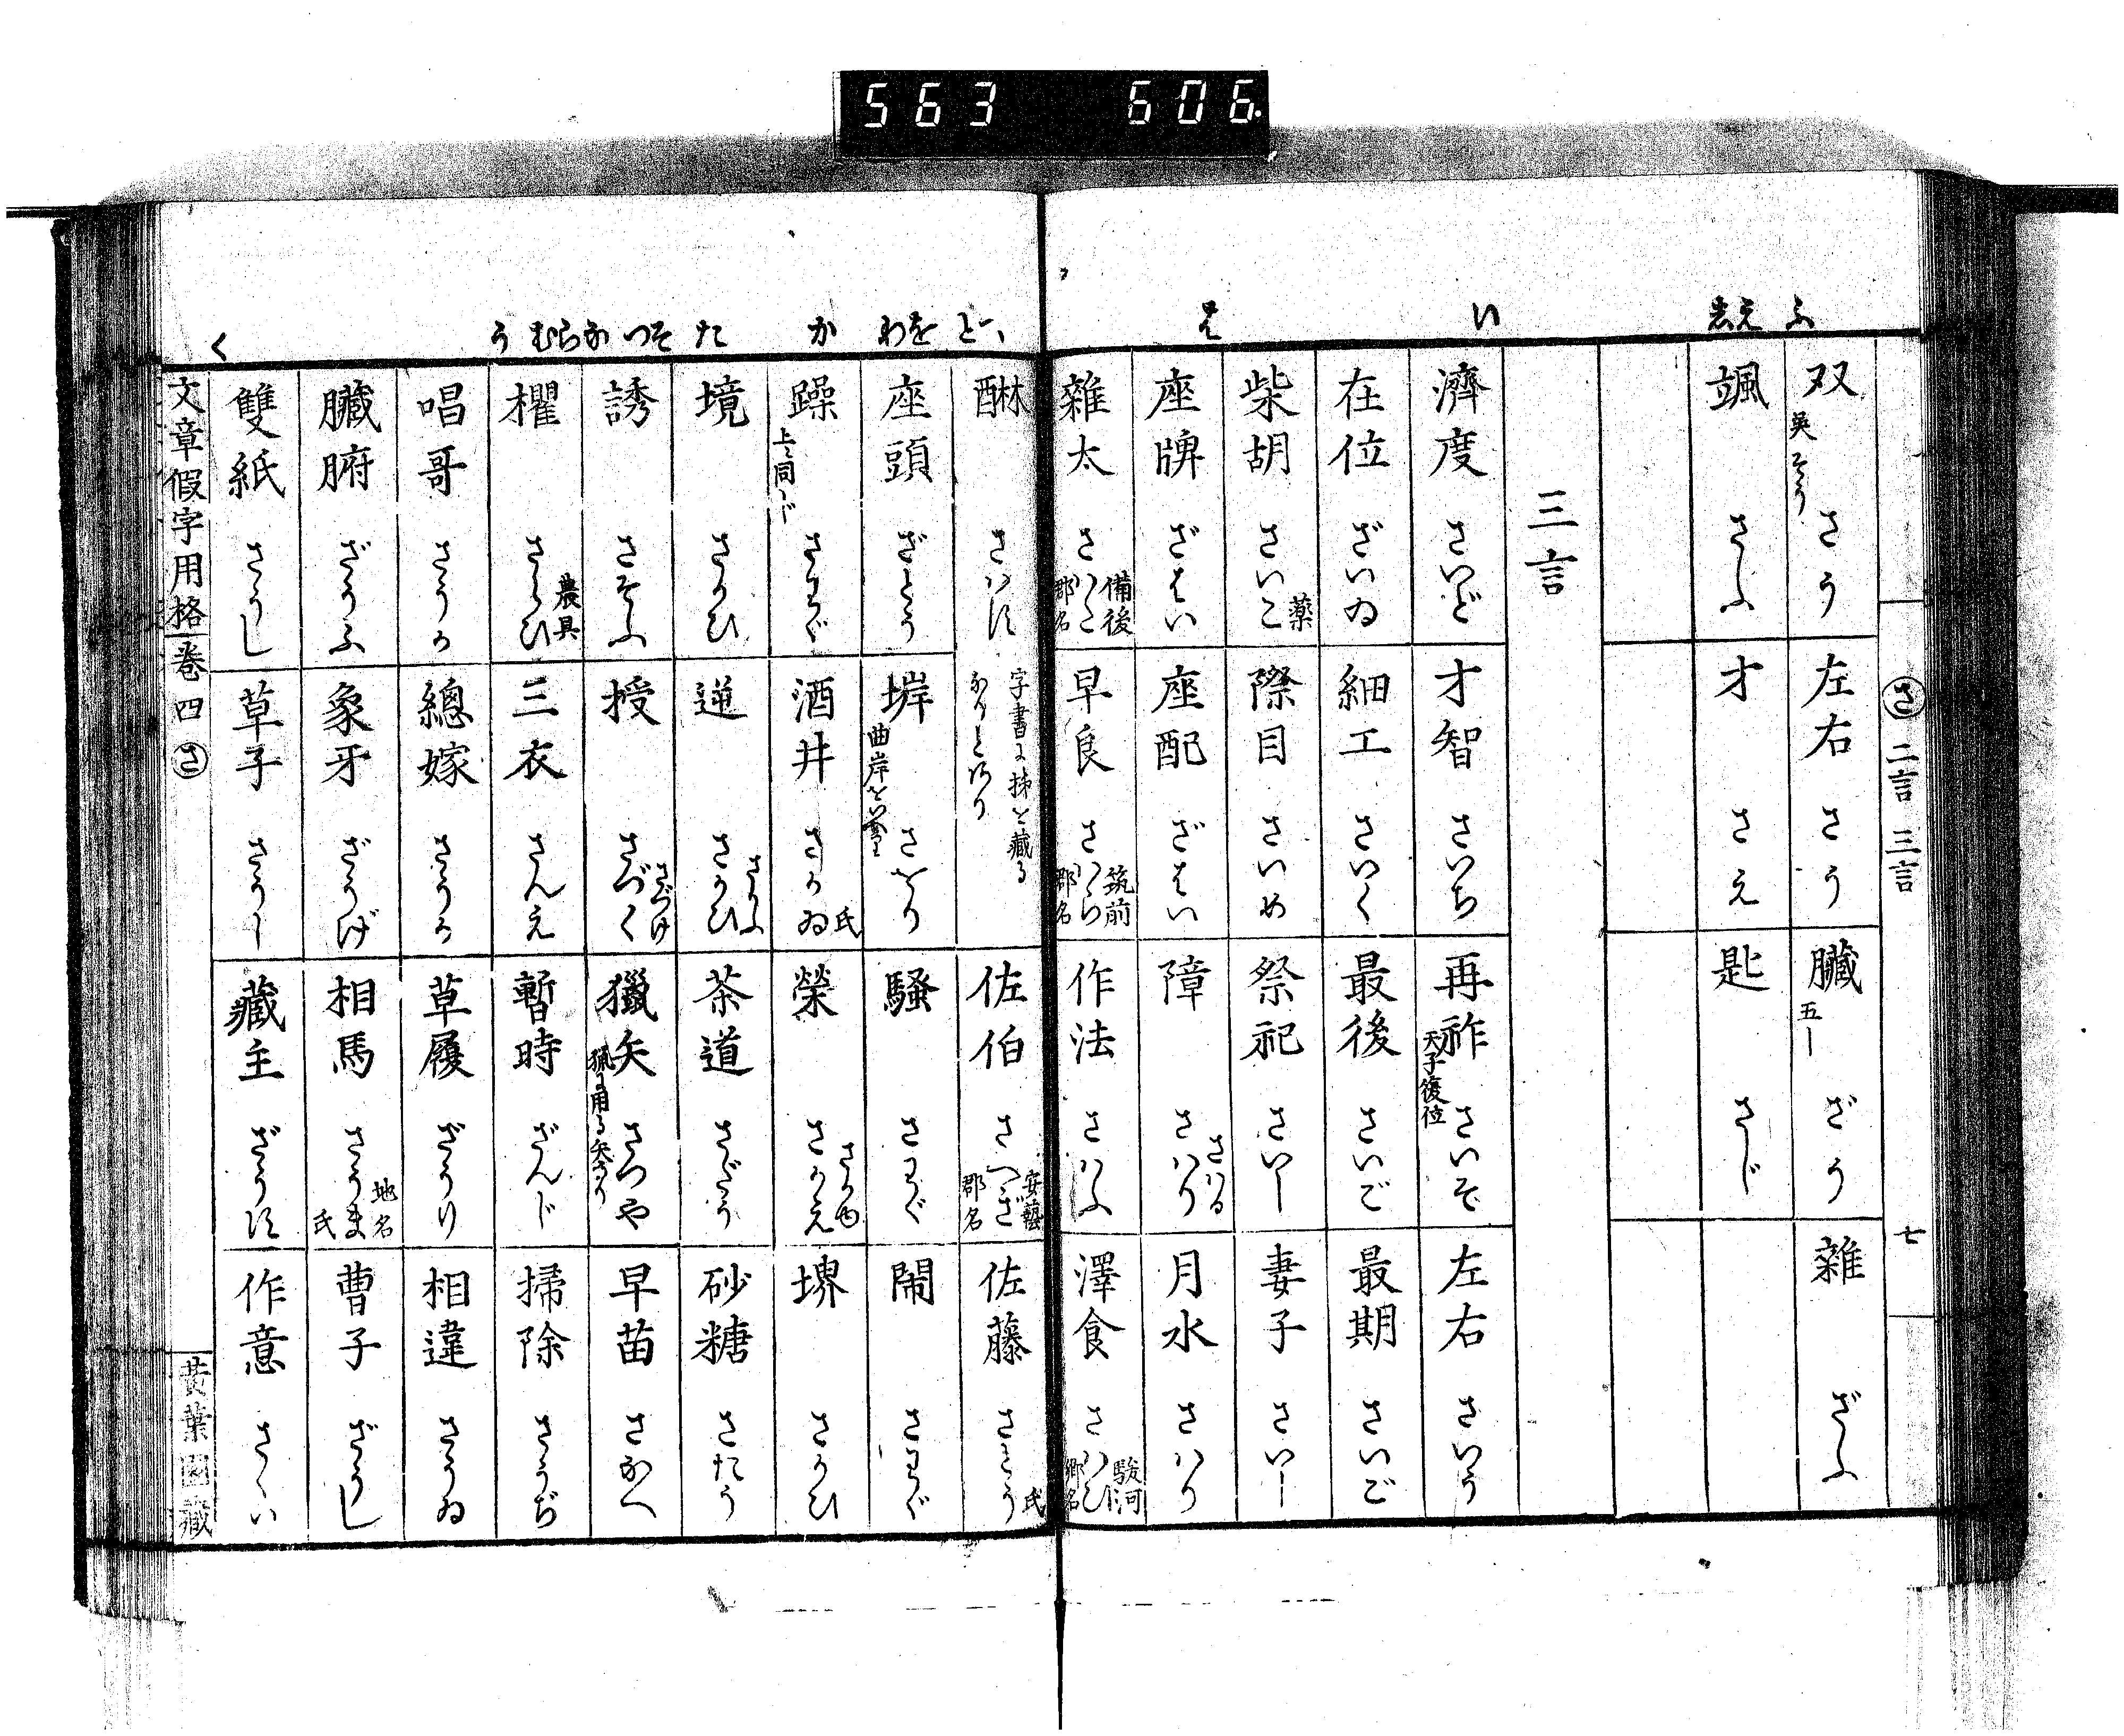 563 606
ふ
え
い
は
さ 二言 三言 七
双 呉そう さう
左右 さう
臓 五ー ざう
雑 ざふ
颯 さふ
才 さえ
匙 さじ
三言
濟度 さいど
才智 さいち
再祚 天子復位 さいそ
左右 さいう
在位 ざいゐ
細工 さいく
最後 さいご
最期 さいご
柴胡 さいこ 薬
際目 さいめ
祭祀 さいし
妻子 さいし
座牌 ざはい
座配 ざはい
障 さはり さはる
月水 さはり
雜太 備後 郡名
早良 さはら 筑前 郡名
作法 さはふ
澤食 さはひ 駿河 郷名
へ と を わ か た そ つ な ら む う く
醂 さはす 字書に柹を藏るなりとあり
佐伯 さへぎ 安藝 郡名
佐藤 さとう 氏
座頭 ざとう
騷 さわぐ
閙 さわぐ
躁 上に同じ さわぐ
酒井 さかゐ 氏
榮 さかえ さかゆ
堺 さかひ
境 さかひ
逆 さかひ さかふ
茶道 さだう
砂糖 さたう
誘 さそふ
授 さづく さづけ
獵矢 さつや 猟に用る矢なり
早苗 さなへ
欋 さらひ 農具
三衣 さんえ
暫時 ざんじ
掃除 さうぢ
唱哥 さうか
總嫁 さうか
草履 ざうり
相違 さうゐ
臓腑 ざうふ
象牙 ざうげ
相馬 さうま 地名 氏
曹子 ざうし
雙紙 さうし
草子 さうし
藏主 ざうす
作意 さくい
文章假字用格 巻四 さ
黄葉園藏